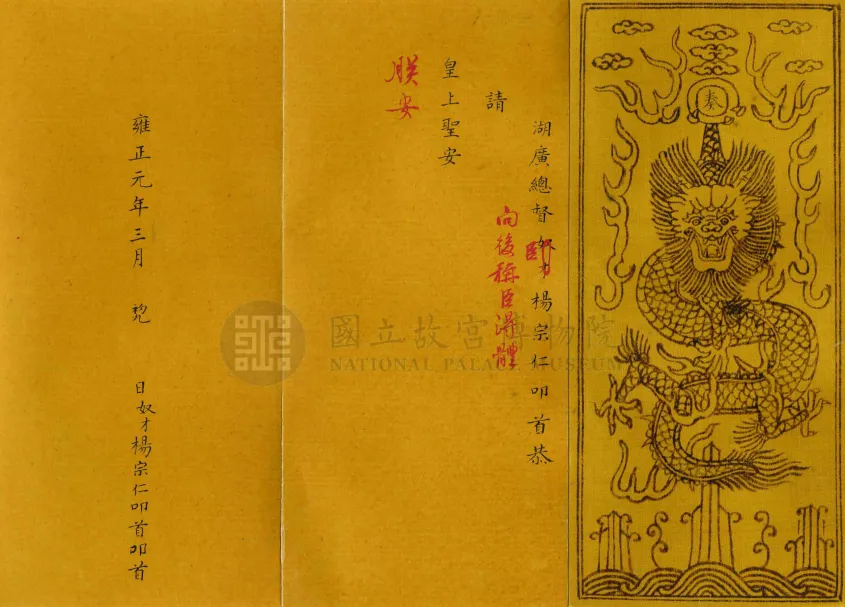 奏
湖廣總督奴才楊宗仁叩首恭
臣
向後稱臣得體
請
皇上聖安
朕安
雍正元年三月
日奴才楊宗仁叩首叩首
國立故宮博物院
NATIONAL PALACE MUSEUM